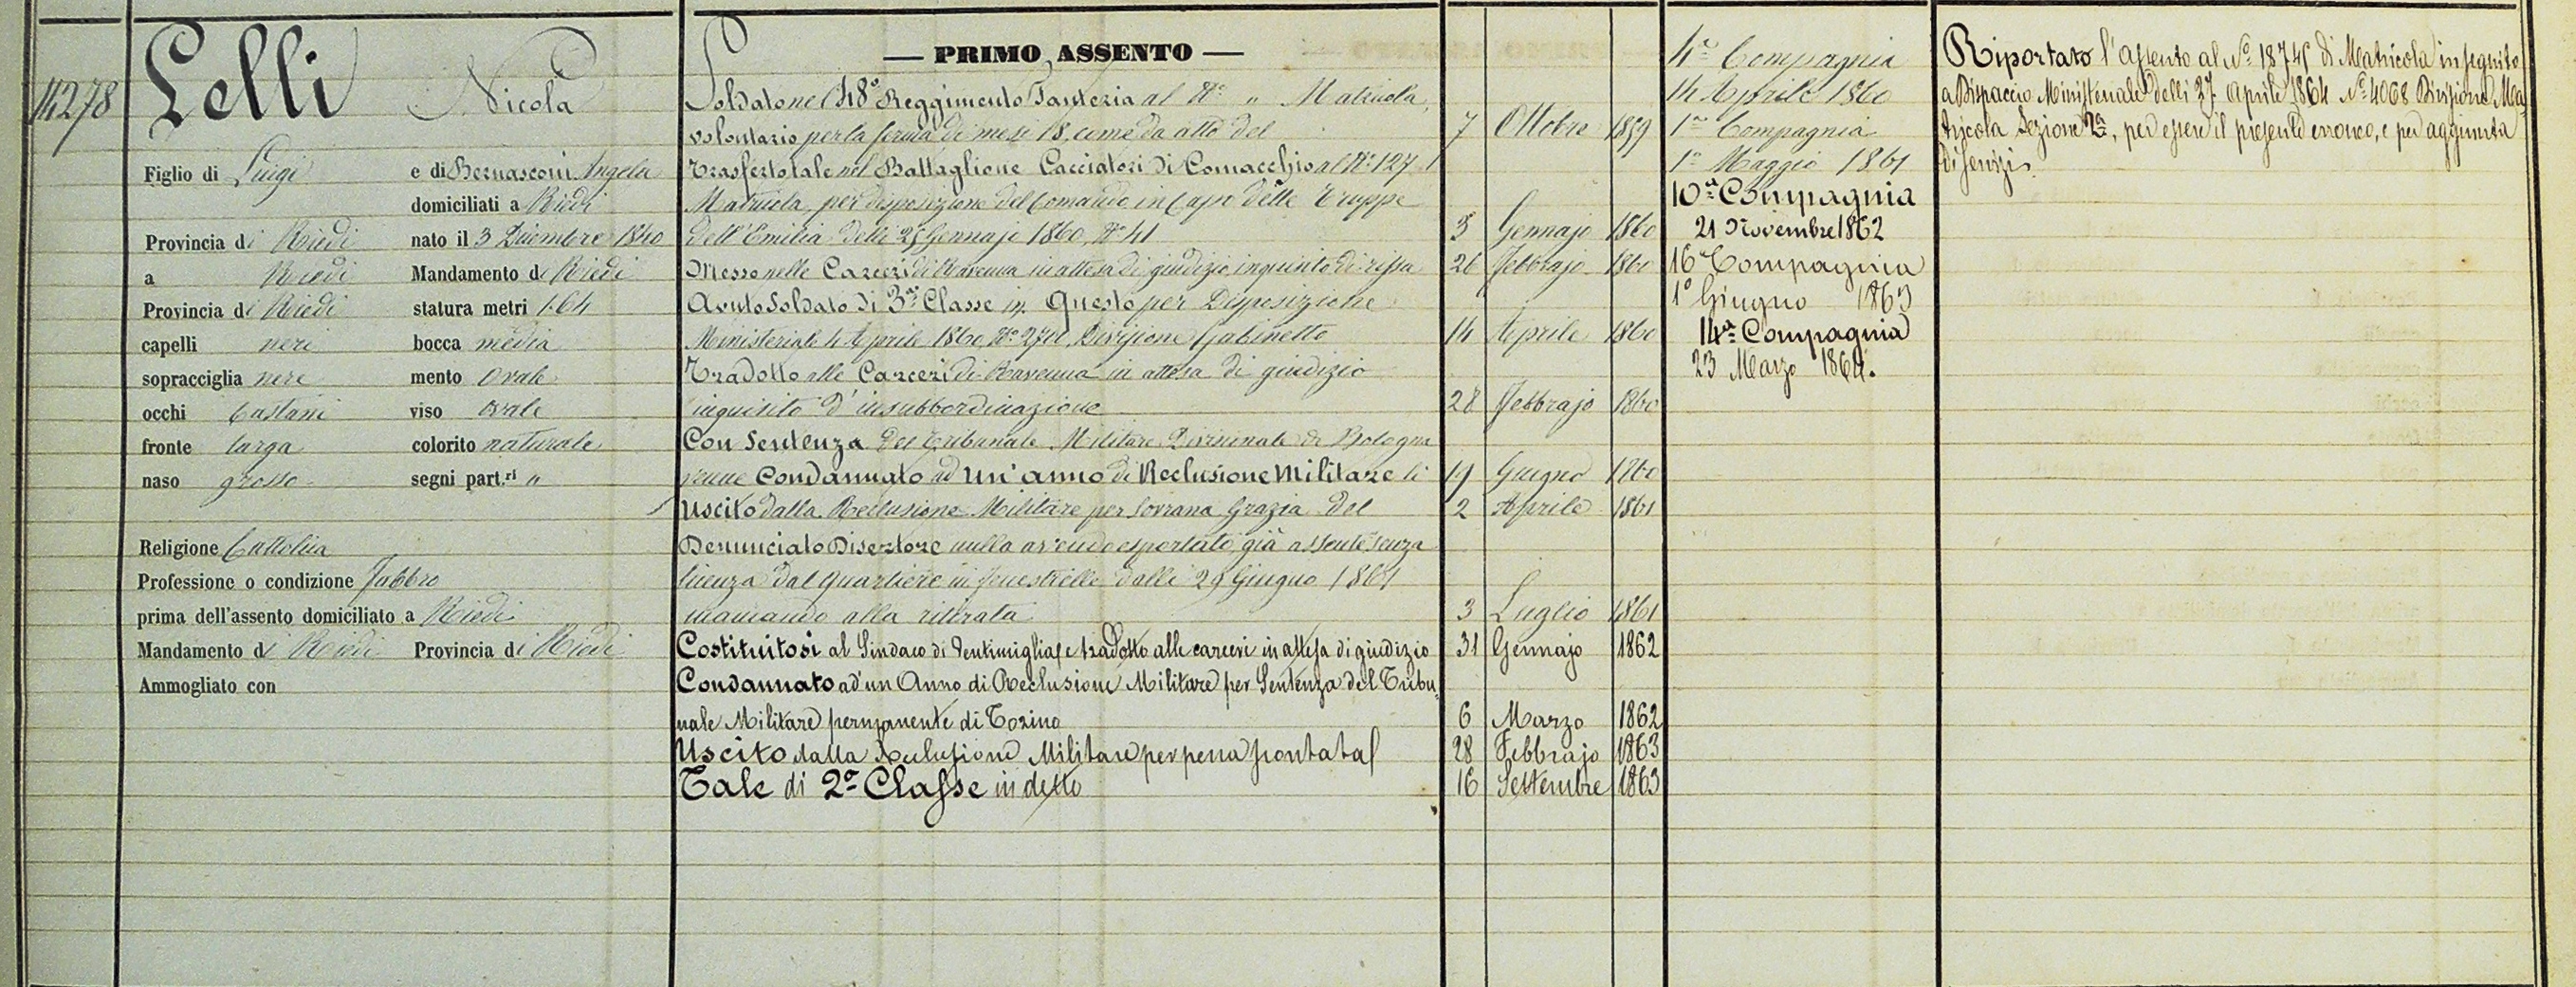 14278
Lelli Nicola
Figlio di Luigi e di Bernasconi Angela
domiciliati a Riedi
Provincia di Riedi nato il 3 Dicembre 1840
a Riedi Mandamento di Riedi
Provincia di Riedi statura metri 1.64
capelli neri bocca media
sopracciglia nere mento ovale
occhi Castani viso ovale
fronte larga colorito naturale
naso grosso segni part.ri "
Religione Cattolica
Professione o condizione Fabbro
prima dell'assento domiciliato a Riedi
Mandamento di Riedi Provincia di Riedi
Ammogliato con
— PRIMO ASSENTO —
Soldato nel 48° Reggimento Fanteria al N° " Matricola,
volontario per la ferma di mesi 18, come da atto del 7 Ottobre 1859
Trasferto tale nel Battaglione Cacciatori di Comacchio al N° 127
Matricola, per disposizione del Comando in Capo delle Truppe
dell'Emilia delli 25 Gennajo 1860, N° 41 3 Gennajo 1860
Messo nelle Carceri di Ravenna in attesa di giudizio inquisito di rissa 26 Febbrajo 1860
Avuto Soldato di 3a Classe in Questo per Disposizione
Ministeriale 4 Aprile 1860 N° Divisione Gabinetto 14 Aprile 1860
Tradotto alle Carceri di Ravenna in attesa di giudizio
inquisito d'insubbordinazione 28 Febbrajo 1860
Con Sentenza del Tribunale Militare Divisionale di Bologna
venne Condannato ad Un'anno di Reclusione Militare li 19 Giugno 1860
Uscito dalla Reclusione Militare per Sovrana Grazia del 2 Aprile 1861
Denunciato Disertore nulla avendo esportato, già assente senza
licenza dal quartiere in Fenestrelle dalli 29 Giugno 1861
mancando alla ritirata 3 Luglio 1861
Costituitosi al Sindaco di Ventimiglia e tradotto alle carceri in attesa di giudizio 31 Gennajo 1862
Condannato ad'un Anno di Reclusione Militare per Sentenza del Tribu-
nale Militare permanente di Torino 6 Marzo 1862
Uscito dalla Reclusione Militare per pena scontata 28 Febbrajo 1863
Tale di 2a Classe in detto 16 Settembre 1863
4a Compagnia
14 Aprile 1860
1a Compagnia
1° Maggio 1861
10a Compagnia
21 Novembre 1862
16a Compagnia
1° Giugno 1863
14a Compagnia
23 Marzo 1864.
Riportato l'assento al N° 18745 di Matricola in seguito
a Dispaccio Ministeriale delli 27 Aprile 1864 N° 4068 Divisione Ma-
tricola Sezione 2a, per essere il presente erroneo, e per aggiunta
di servizi